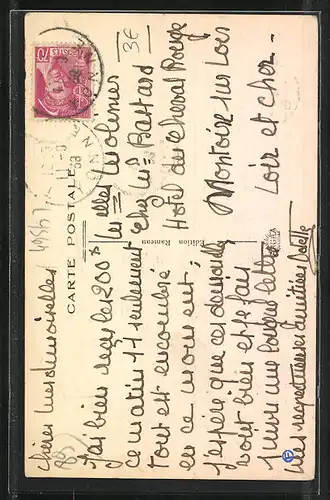 3€
49557
CARTE POSTALE
Edition Ranteau
POSTES
70
38
Chères Mesdemoiselles
J'ai bien reçu les 200 f
ce matin 11 seulement
tout est encombré
en ce moment,
J'espère que ces demoiselles
vont bien et je fais
suivre une longue lettre
Mes respectueuses amitiés Odette
Mesdelles Molines
chez Mr Bastard
Hotel du Cheval Rouge
Montoire sur Loir
Loir et Cher